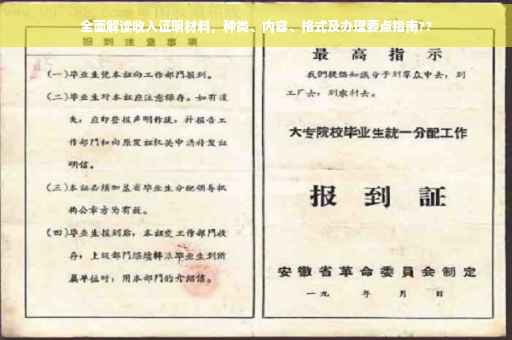 全面解读收入证明材料，种类、内容、格式及办理要点指南??
报到注意事项
(一)毕业生凭本证向工作部门报到。
(二)毕业生对本证应注意保存。如有遗
失，应即登报声明作废，并报告工
作部门和向原发证机关申请补发证
明信。
(三)本证必须加盖省毕业生分配领导机
构公章方为有效。
(四)毕业生报到后，本证交工作部门收
存；上级部门继续转派毕业生到所
属单位时，用本部门的介绍信。
最高指示
我们提倡知识分子到群众中去，到
工厂去，到农村去。
大专院校毕业生统一分配工作
报到証
安徽省革命委員会制定
一九 年 月 日